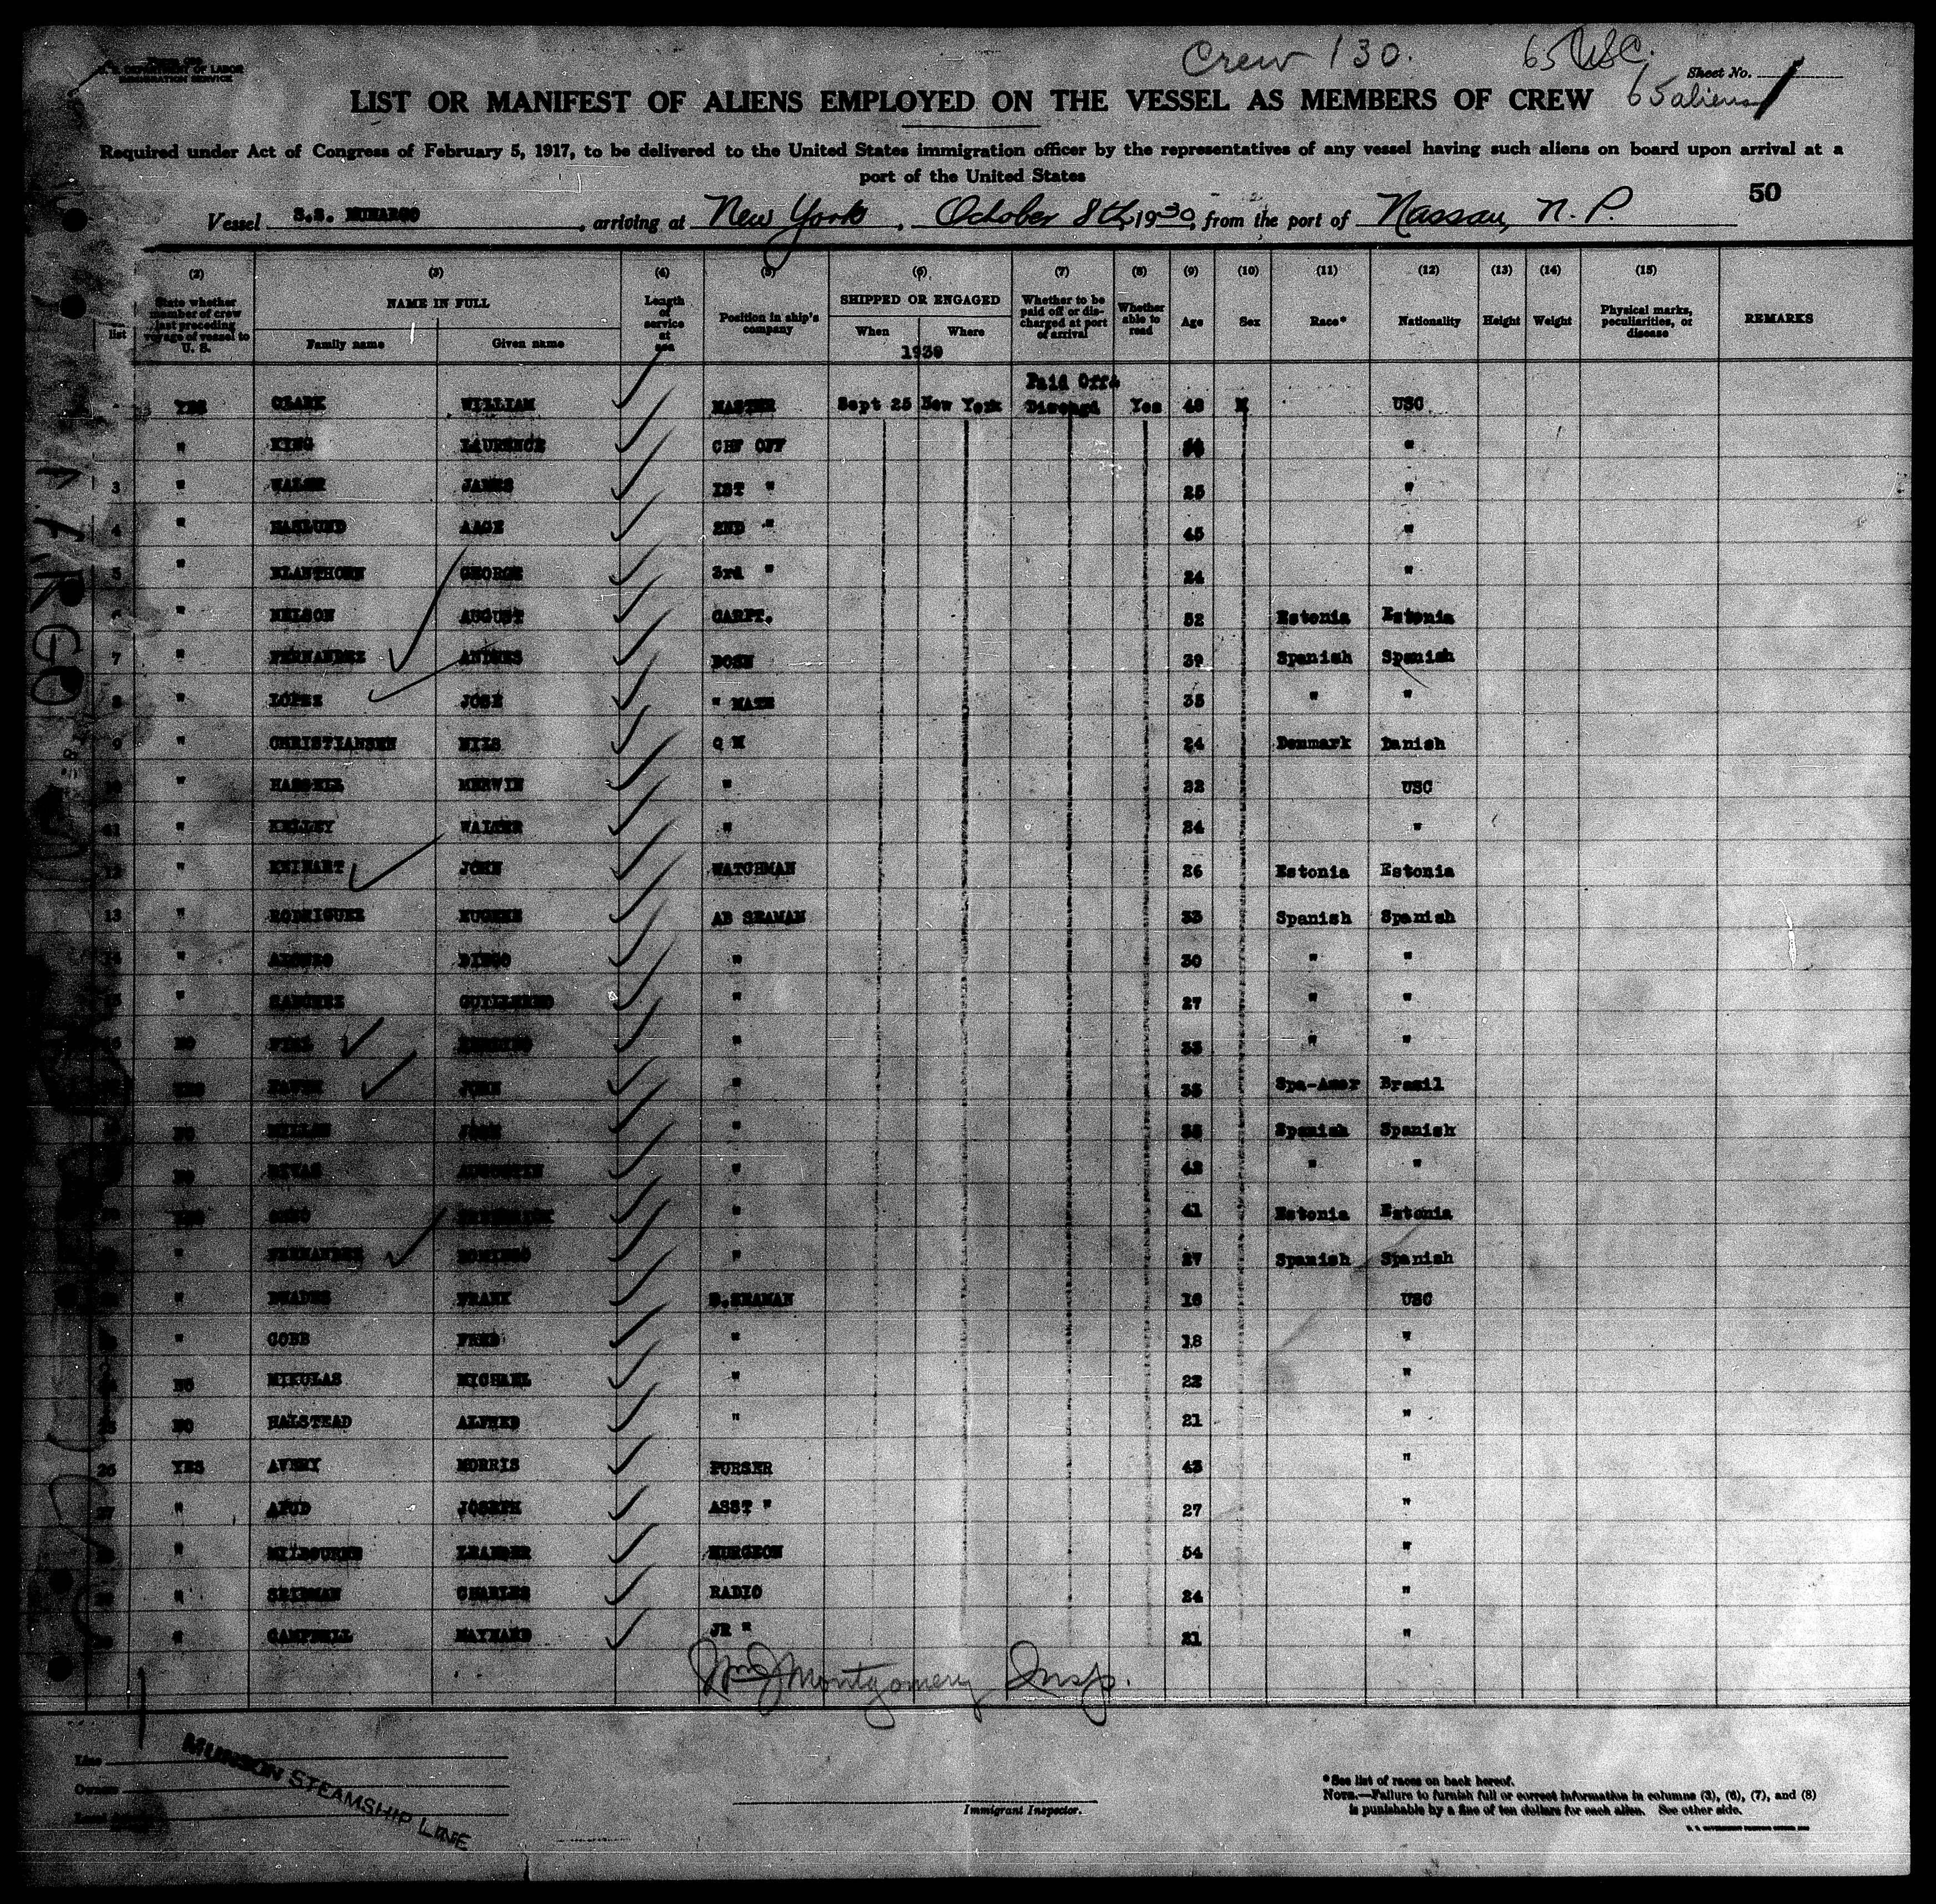 Crew 130. 65 USC.
U. S. DEPARTMENT OF LABOR
IMMIGRATION SERVICE
Sheet No. 1
LIST OR MANIFEST OF ALIENS EMPLOYED ON THE VESSEL AS MEMBERS OF CREW 65 aliens
Required under Act of Congress of February 5, 1917, to be delivered to the United States immigration officer by the representatives of any vessel having such aliens on board upon arrival at a
port of the United States
50
Vessel S.S. MUNARGO, arriving at New York, October 8th, 1930, from the port of Nassau, N. P.
(2) (3) (4) (5) (6) (7) (8) (9) (10) (11) (12) (13) (14) (15)
list State whether member of crew last preceding voyage of vessel to U. S. NAME IN FULL Family name Given name Length of service at sea Position in ship's company SHIPPED OR ENGAGED When Where Whether to be paid off or discharged at port of arrival Whether able to read Age Sex Race* Nationality Height Weight Physical marks, peculiarities, or disease REMARKS
1930
Paid Off&
YES CLARK WILLIAM MASTER Sept 25 New York Dischgd Yes 48 M USC
" KING LAURENCE CHF OFF "
3 " WALSH JAMES 1ST " 25 "
4 " HASLUND AAGE 2ND " 45 "
5 " BLANTHORN GEORGE 3rd " 24 "
6 " NELSON AUGUST CARPT. 52 Estonia Estonia
7 " FERNANDEZ ANDRES BOSN 39 Spanish Spanish
8 " LOPEZ JOSE " MATE 35 " "
9 " CHRISTIANSEN NILS Q M 24 Denmark Danish
10 " MERWIN " 22 USC
11 " KELLEY WALTER " 24 "
12 " JOHN WATCHMAN 26 Estonia Estonia
13 " RODRIGUEZ EUGENE AB SEAMAN 33 Spanish Spanish
14 " ALONZO DIEGO " 30 " "
15 " GUILLERMO " 27 " "
16 NO " 35 " "
YES JOHN " 36 Spa-Amer Brazil
NO JOSE " Spanish Spanish
NO RIVAS AUGUSTIN " 42 " "
YES " 41 Estonia Estonia
" FERNANDEZ DOMINGO " 27 Spanish Spanish
" FRANK S.SEAMAN USC
" COBB FRED " 18 "
NO MIKULAS MICHAEL " 22 "
25 NO HALSTEAD ALFRED " 21 "
26 YES AVERY MORRIS PURSER 43 "
27 " JOSEPH ASST " 27 "
" MILBOURNE LEANDER SURGEON 54 "
" CHARLES RADIO 24 "
" CAMPBELL MAYNARD JR " 21 "
Wm J Montgomery Insp.
Line
Owners
MUNSON STEAMSHIP LINE
Immigrant Inspector.
*See list of races on back hereof.
NOTE.—Failure to furnish full or correct information in columns (3), (6), (7), and (8)
is punishable by a fine of ten dollars for each alien. See other side.
MUNARGO